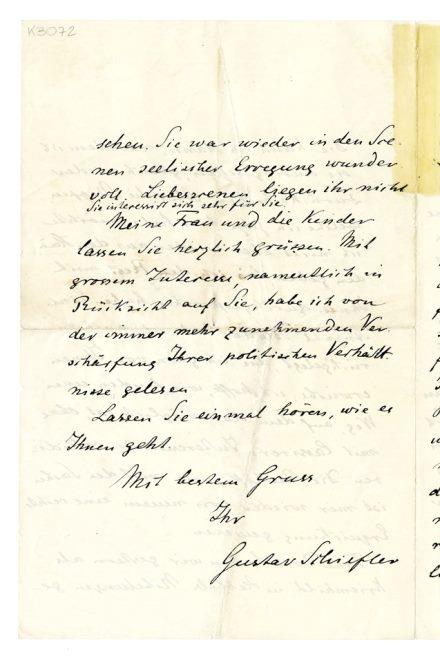 K3072
sehen. Sie war wieder in den Sce-
nen seelischer Erregung wunder-
voll. Liebesscenen liegen ihr nicht
Sie interessirt sich sehr für Sie.
Meine Frau und die Kinder
lassen Sie herzlich grüssen. Mit
grossem Interesse, namentlich in
Rücksicht auf Sie, habe ich von
der immer mehr zunehmenden Ver-
schärfung Ihrer politischen Verhält-
nisse gelesen
Lassen Sie einmal hören, wie es
Ihnen geht.
Mit bestem Gruss
Ihr
Gustav Schiefler